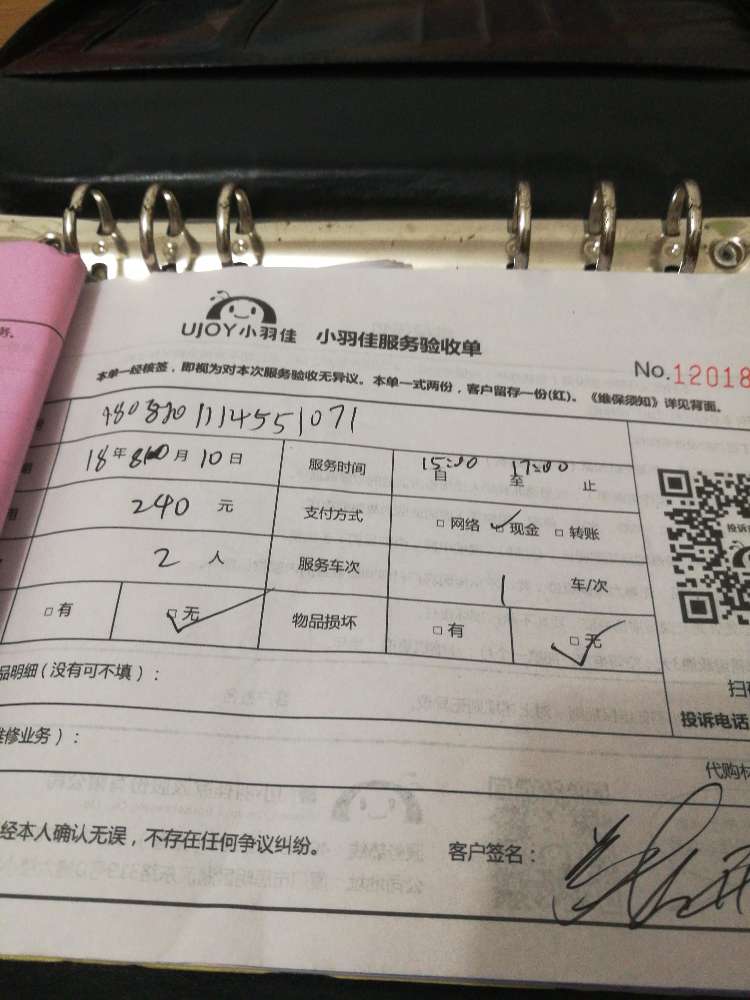 UJOY小羽佳 小羽佳服务验收单
No.12018
本单一经核签，即视为对本次服务验收无异议。本单一式两份，客户留存一份(红)。《维保须知》详见背面。
18年 月10日 服务时间 15:00 自 17:00 至 止
240 元 支付方式 □网络 □现金 □转账
2 人 服务车次 1 车/次
□有 □无 物品损坏 □有 □无
品明细（没有可不填）：
投诉电话
维修业务）：
代购
经本人确认无误，不存在任何争议纠纷。 客户签名：